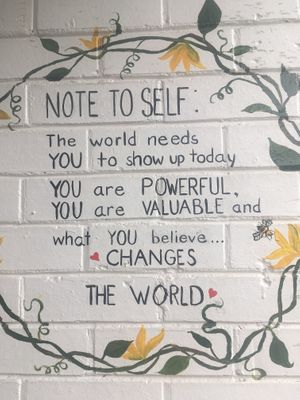 NOTE TO SELF:
The world needs
YOU to show up today
YOU are POWERFUL,
YOU are VALUABLE and
what YOU believe...
CHANGES
THE WORLD